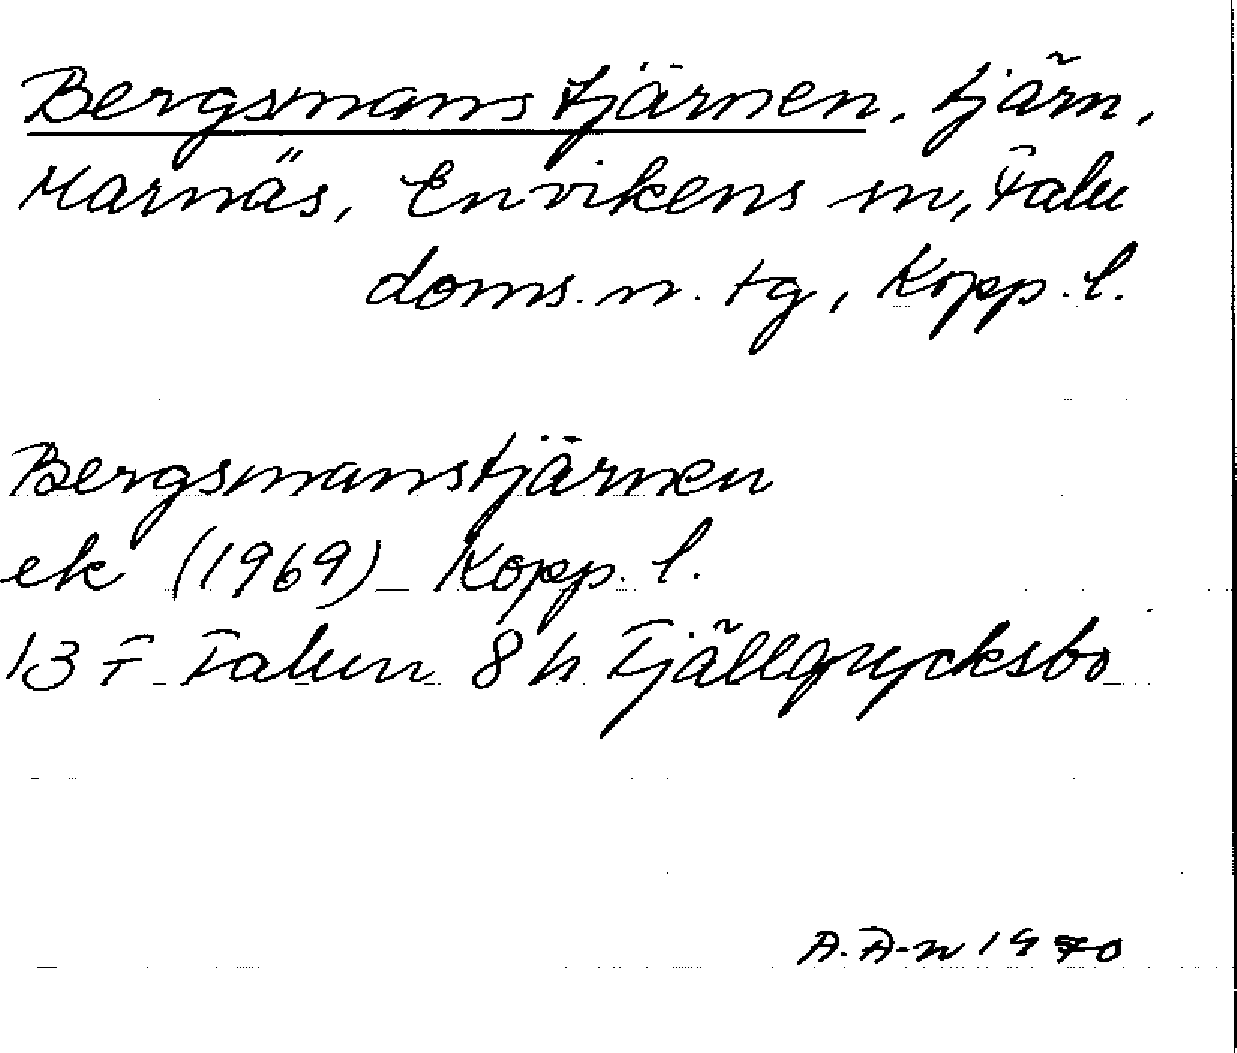 Bergsmanstjärnen, tjärn,
Marnäs, Envikens sn, Falu
doms. n. tg, Kopp. l.
Bergsmanstjärnen
ek (1969) Kopp. l.
13 F Falun 8 h Fjällgrycksbo
A. A-n 1970